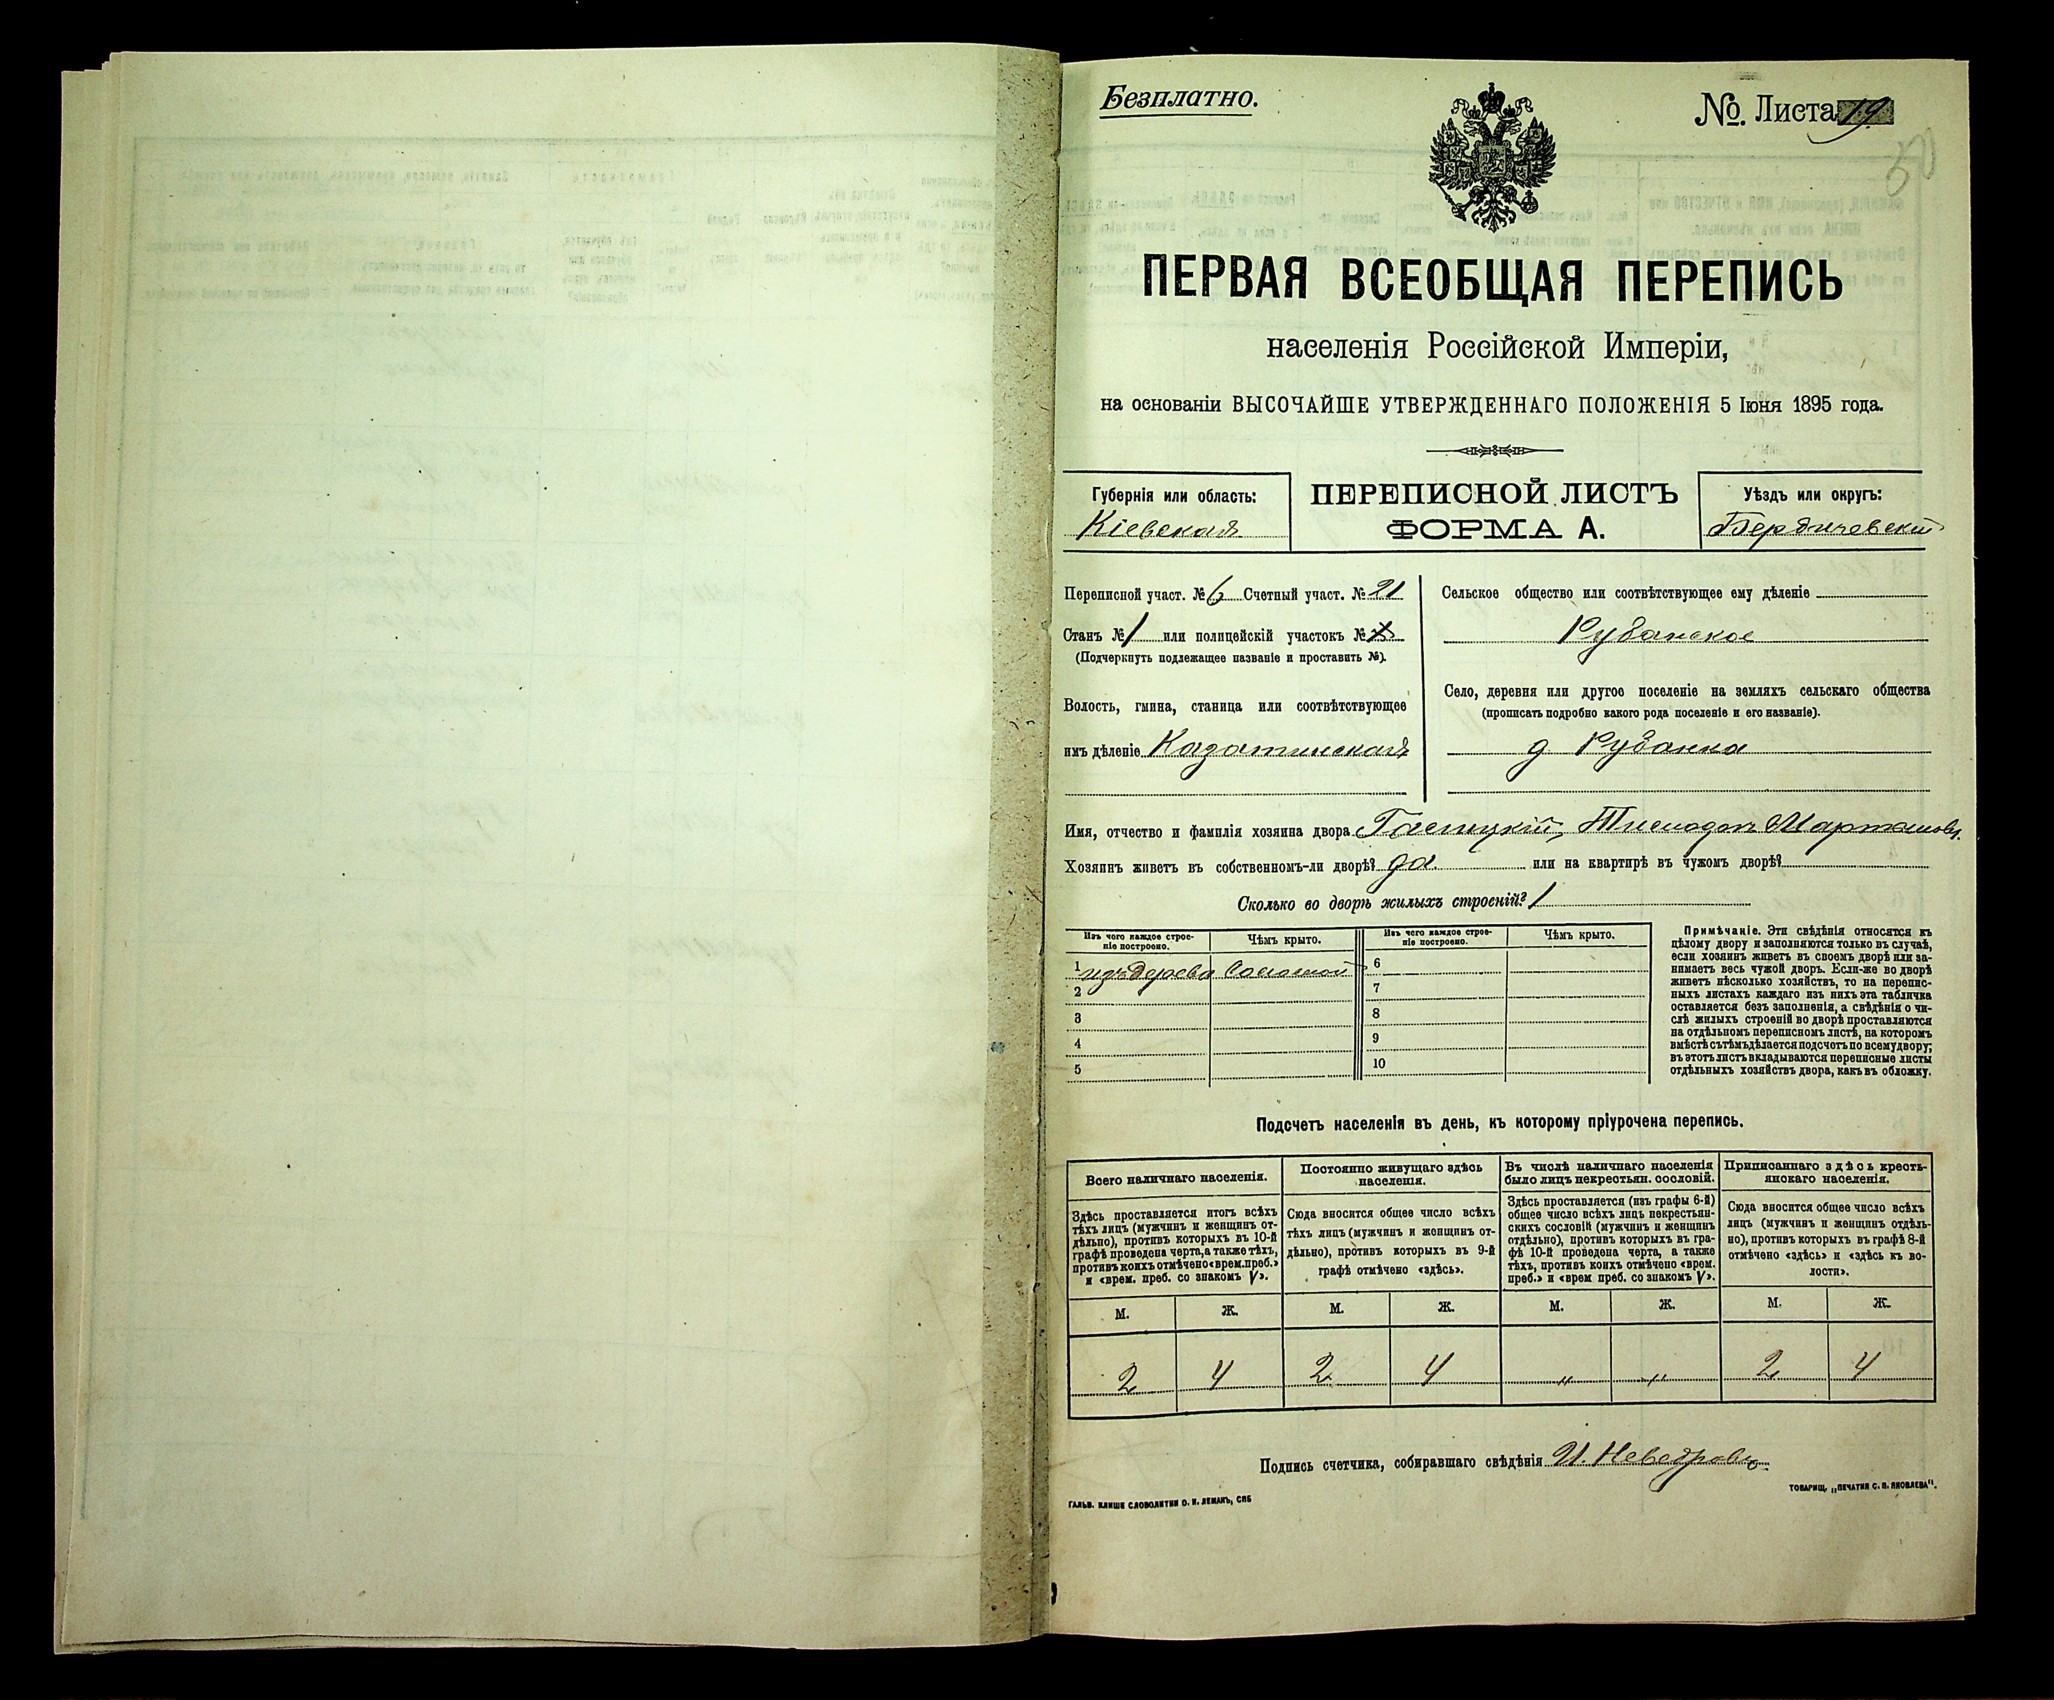 Безплатно.
№. Листа 19
50
ПЕРВАЯ ВСЕОБЩАЯ ПЕРЕПИСЬ
населенія Россійской Имперіи,
на основаніи ВЫСОЧАЙШЕ УТВЕРЖДЕННАГО ПОЛОЖЕНІЯ 5 Іюня 1895 года.
Губернія или область:
Кіевская
ПЕРЕПИСНОЙ ЛИСТЪ
ФОРМА А.
Уѣздъ или округъ:
Бердичевскій
Переписной участ. № 6 Счетный участ. № 21
Станъ № 1 или полицейскій участокъ №
(Подчеркнуть подлежащее названіе и проставить №).
Волость, гмина, станица или соотвѣтствующее
имъ дѣленіе Казатинская
Сельское общество или соотвѣтствующее ему дѣленіе
Рубанское
Село, деревня или другое поселеніе на земляхъ сельскаго общества
(прописать подробно какого рода поселеніе и его названіе).
д Рубанка
Имя, отчество и фамилія хозяина двора
Хозяинъ живетъ въ собственномъ-ли дворѣ? да или на квартирѣ въ чужомъ дворѣ?
Сколько во дворѣ жилыхъ строеній? 1
Изъ чего каждое строе-
ніе построено.
Чѣмъ крыто.
Изъ чего каждое строе-
ніе построено.
Чѣмъ крыто.
1 изъ дерева Соломой 6
2 7
3 8
4 9
5 10
Примѣчаніе. Эти свѣдѣнія относятся къ
цѣлому двору и заполняются только въ случаѣ,
если хозяинъ живетъ въ своемъ дворѣ или за-
нимаетъ весь чужой дворъ. Если-же во дворѣ
живетъ нѣсколько хозяйствъ, то на перепис-
ныхъ листахъ каждаго изъ нихъ эта табличка
оставляется безъ заполненія, а свѣдѣнія о чи-
слѣ жилыхъ строеній во дворѣ проставляются
на отдѣльномъ переписномъ листѣ, на которомъ
вмѣстѣ съ тѣмъ дѣлается подсчетъ по всему двору;
въ этотъ листъ вкладываются переписные листы
отдѣльныхъ хозяйствъ двора, какъ въ обложку.
Подсчетъ населенія въ день, къ которому пріурочена перепись.
Всего наличнаго населенія.
Здѣсь проставляется итогъ всѣхъ
тѣхъ лицъ (мужчинъ и женщинъ от-
дѣльно), противъ которыхъ въ 10-й
графѣ проведена черта, а также тѣхъ,
противъ коихъ отмѣчено «врем. преб.»
и «врем. преб. со знакомъ V».
Постоянно живущаго здѣсь
населенія.
Сюда вносится общее число всѣхъ
тѣхъ лицъ (мужчинъ и женщинъ от-
дѣльно), противъ которыхъ въ 9-й
графѣ отмѣчено «здѣсь».
Въ числѣ наличнаго населенія
было лицъ некрестьян. сословій.
Здѣсь проставляется (изъ графы 6-й)
общее число всѣхъ лицъ некрестьян-
скихъ сословій (мужчинъ и женщинъ
отдѣльно), противъ которыхъ въ гра-
фѣ 10-й проведена черта, а также
тѣхъ, противъ коихъ отмѣчено «врем.
преб.» и «врем преб. со знакомъ V».
Приписаннаго здѣсь кресть-
янскаго населенія.
Сюда вносится общее число всѣхъ
лицъ (мужчинъ и женщинъ отдѣль-
но), противъ которыхъ въ графѣ 8-й
отмѣчено «здѣсь» и «здѣсь къ во-
лости».
М. Ж. М. Ж. М. Ж. М. Ж.
2 4 2 4 „ „ 2 4
Подпись счетчика, собиравшаго свѣдѣнія И. Неведровъ
ГАЛЬВ. КЛИШЕ СЛОВОЛИТНИ О. И. ЛЕМАНЪ, СПБ
ТОВАРИЩ. „ПЕЧАТНЯ С. П. ЯКОВЛЕВА".